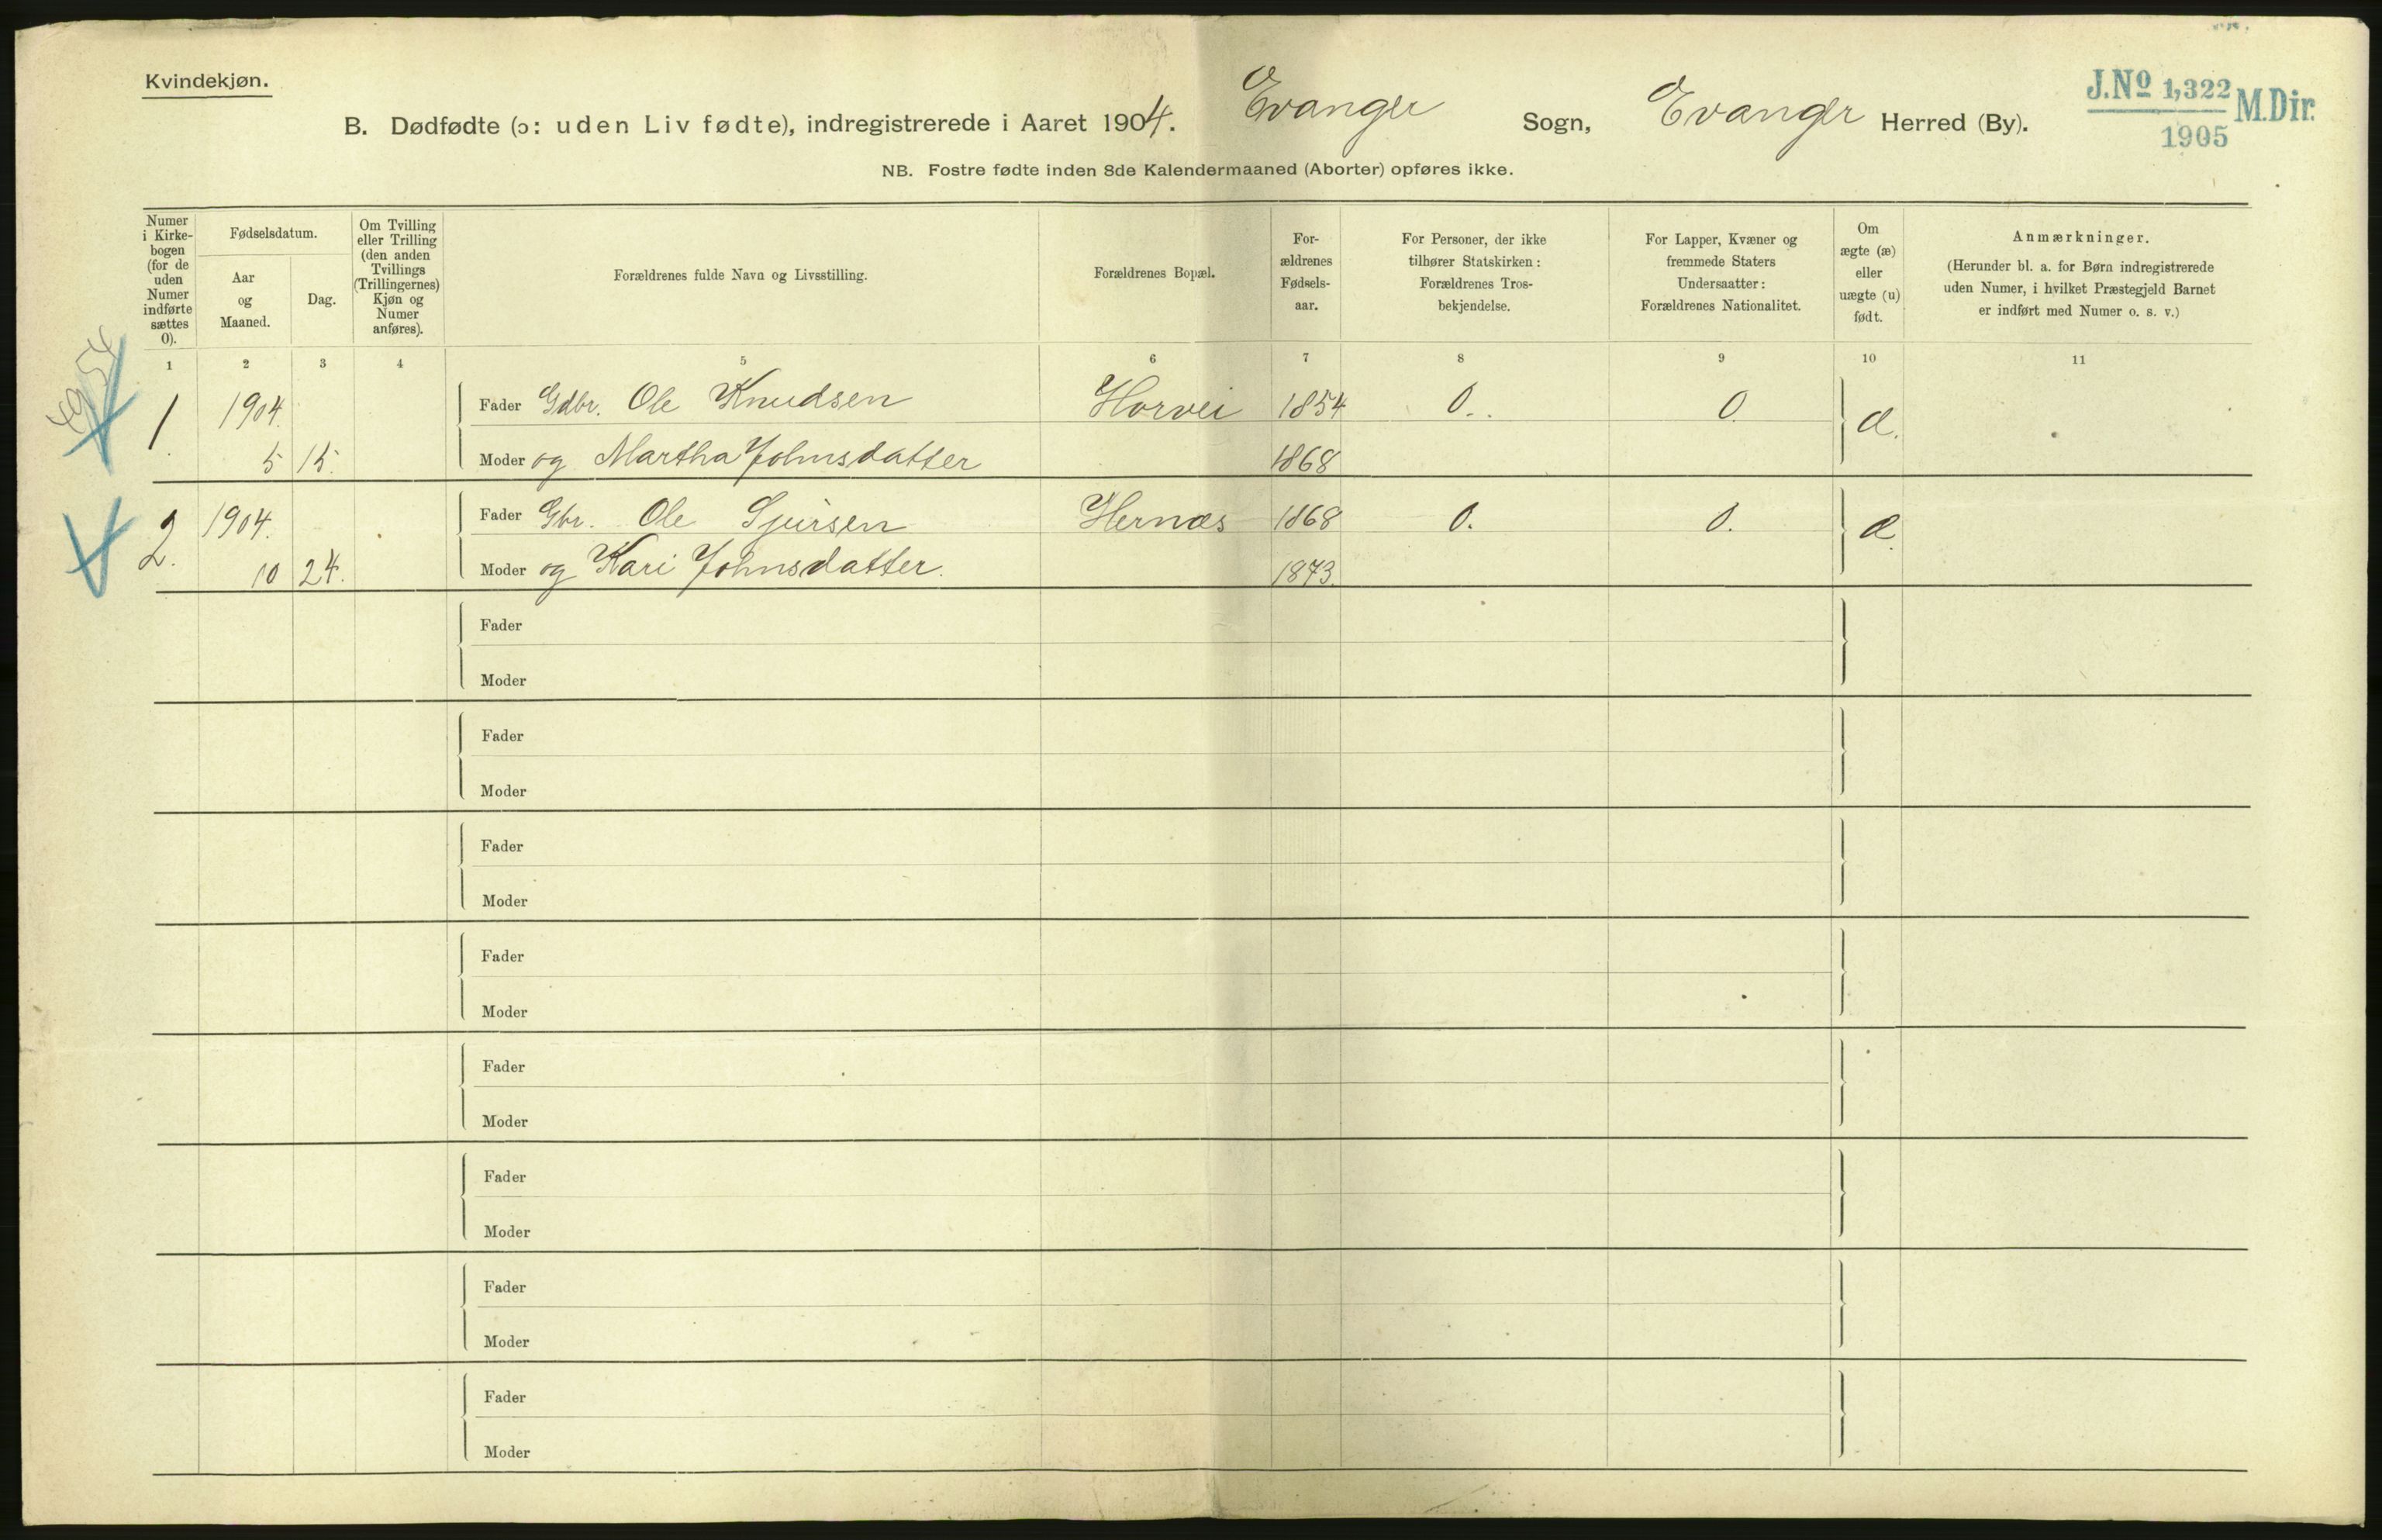 Kvindekjøn.
B. Dødfødte (ɔ: uden Liv fødte), indregistrerede i Aaret 1904. Evanger Sogn, Evanger Herred (By).
J.No 1,322 M.Dir.
1905
NB. Fostre fødte inden 8de Kalendermaaned (Aborter) opføres ikke.
Numer
i Kirke-
bogen
(for de
uden
Numer
indførte
sættes
0).
Fødselsdatum.
Aar
og
Maaned.
Dag.
Om Tvilling
eller Trilling
(den anden
Tvillings
(Trillingernes)
Kjøn og
Numer
anføres).
Forældrenes fulde Navn og Livsstilling.
Forældrenes Bopæl.
For-
ældrenes
Fødsels-
aar.
For Personer, der ikke
tilhører Statskirken:
Forældrenes Tros-
bekjendelse.
For Lapper, Kvæner og
fremmede Staters
Undersaatter:
Forældrenes Nationalitet.
Om
ægte (æ)
eller
uægte (u)
født.
Anmærkninger.
(Herunder bl. a. for Børn indregistrerede
uden Numer, i hvilket Præstegjeld Barnet
er indført med Numer o. s. v.)
1 2 3 4 5 6 7 8 9 10 11
1 1904. Fader Gdbr. Ole Knudsen Horvei 1854 0. 0 æ.
5 15. Moder og Martha Johnsdatter 1868
2. 1904. Fader Gbr. Ole Sjursen Hernæs 1868 0. 0. æ.
10 24. Moder og Kari Johnsdatter. 1873.
Fader
Moder
Fader
Moder
Fader
Moder
Fader
Moder
Fader
Moder
Fader
Moder
Fader
Moder
Fader
Moder